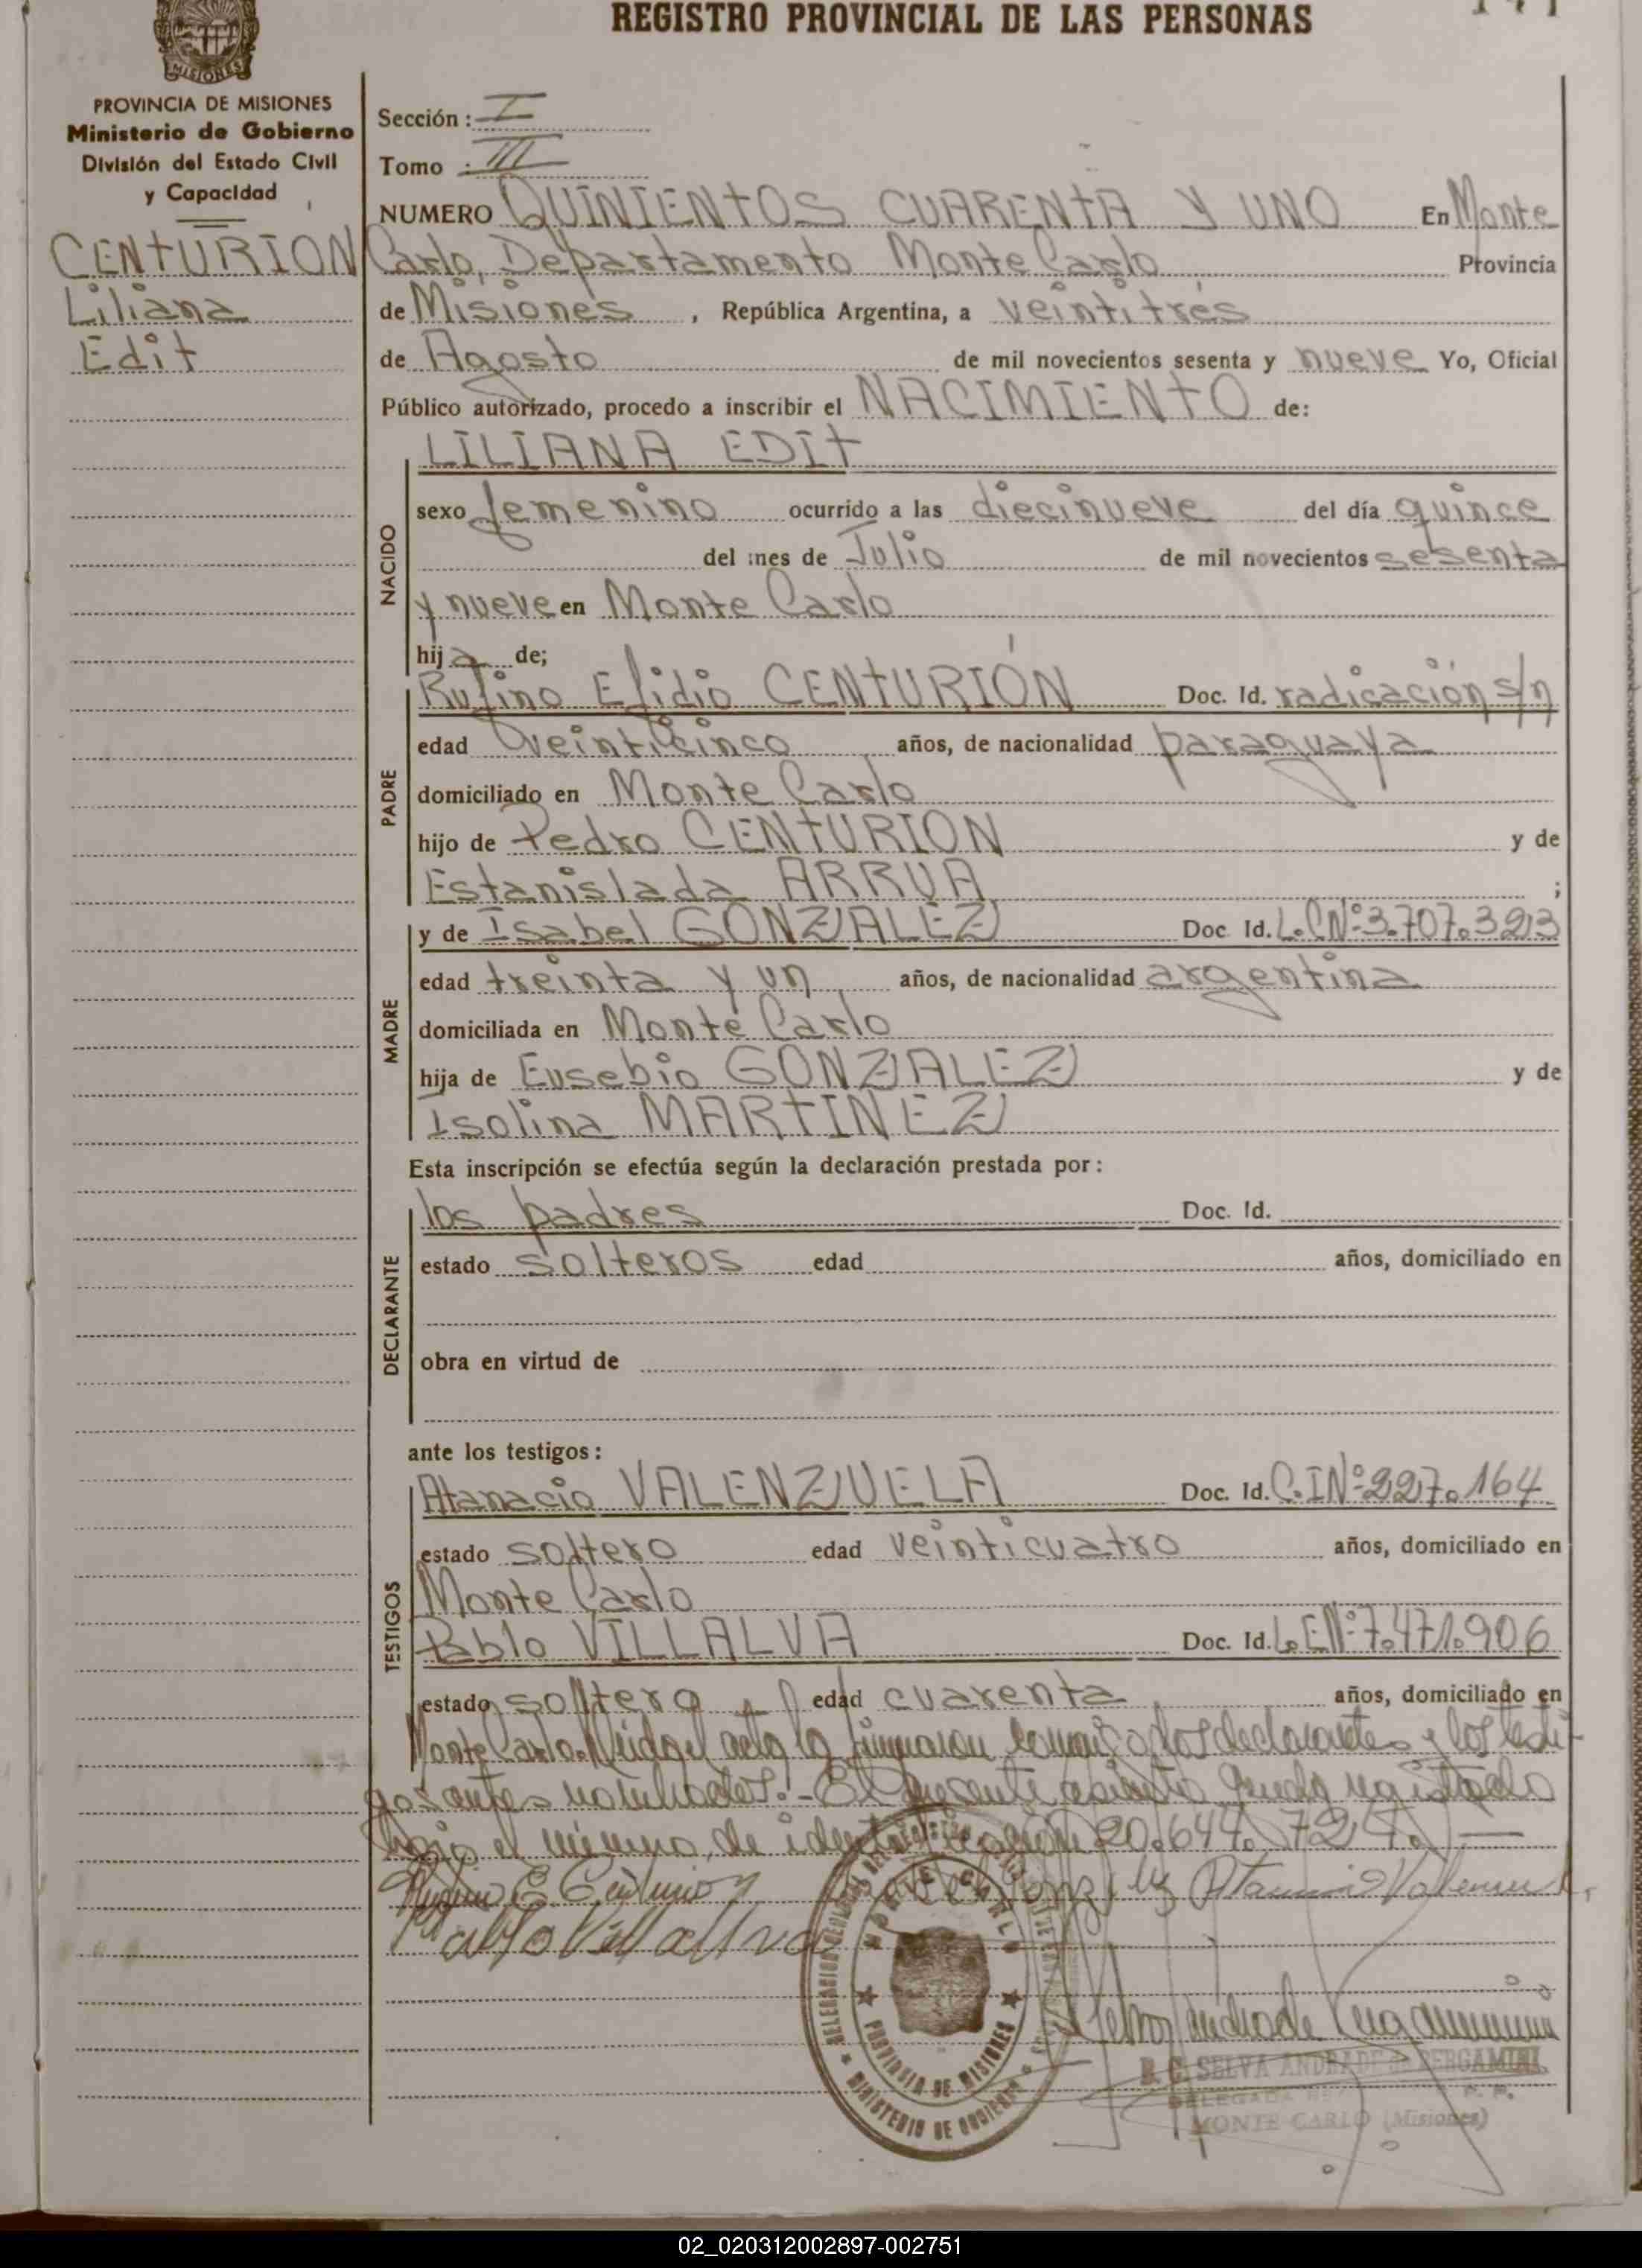 REGISTRO PROVINCIAL DE LAS PERSONAS
MISIONES
PROVINCIA DE MISIONES
Ministerio de Gobierno
División del Estado Civil
y Capacidad
CENTURION
Liliana
Edit
Sección : I
Tomo : III
NUMERO QUINIENTOS CUARENTA Y UNO En Monte
Carlo, Departamento Monte Carlo Provincia
de Misiones , República Argentina, a veintitrés
de Agosto de mil novecientos sesenta y nueve Yo, Oficial
Público autorizado, procedo a inscribir el NACIMIENTO de:
LILIANA EDIT
NACIDO
sexo femenino ocurrido a las diecinueve del día quince
del mes de Julio de mil novecientos sesenta
y nueve en Monte Carlo
hija de;
PADRE
Rufino Elidio CENTURIÓN Doc. Id. radicación s/n
edad veinticinco años, de nacionalidad paraguaya
domiciliado en Monte Carlo
hijo de Pedro CENTURION y de
Estanislada ARRUA ;
MADRE
y de Isabel GONZALEZ Doc. Id. L.C Nº 3.707.323
edad treinta y un años, de nacionalidad argentina
domiciliada en Monte Carlo
hija de Eusebio GONZALEZ y de
Isolina MARTINEZ
Esta inscripción se efectúa según la declaración prestada por :
DECLARANTE
los padres Doc. Id.
estado solteros edad años, domiciliado en
obra en virtud de
ante los testigos :
TESTIGOS
Atanacio VALENZUELA Doc. Id. C.I Nº 227.164
estado soltero edad veinticuatro años, domiciliado en
Monte Carlo
Pablo VILLALVA Doc. Id. L.E Nº 7.471.906
estado soltero edad cuarenta años, domiciliado en
Monte Carlo. Leída el acta la firmaron conmigo los declarantes y los testi-
gos antes nombrados.- El presente asiento queda registrado
bajo el número de identificación 20.644.724.
Pablo Villalva
MONTE CARLO
PROVINCIA DE MISIONES
MINISTERIO DE GOBIERNO
B. C. SELVA ANDRADE de BERGAMINI
DELEGADA
MONTE CARLO (Misiones)
02_020312002897-002751